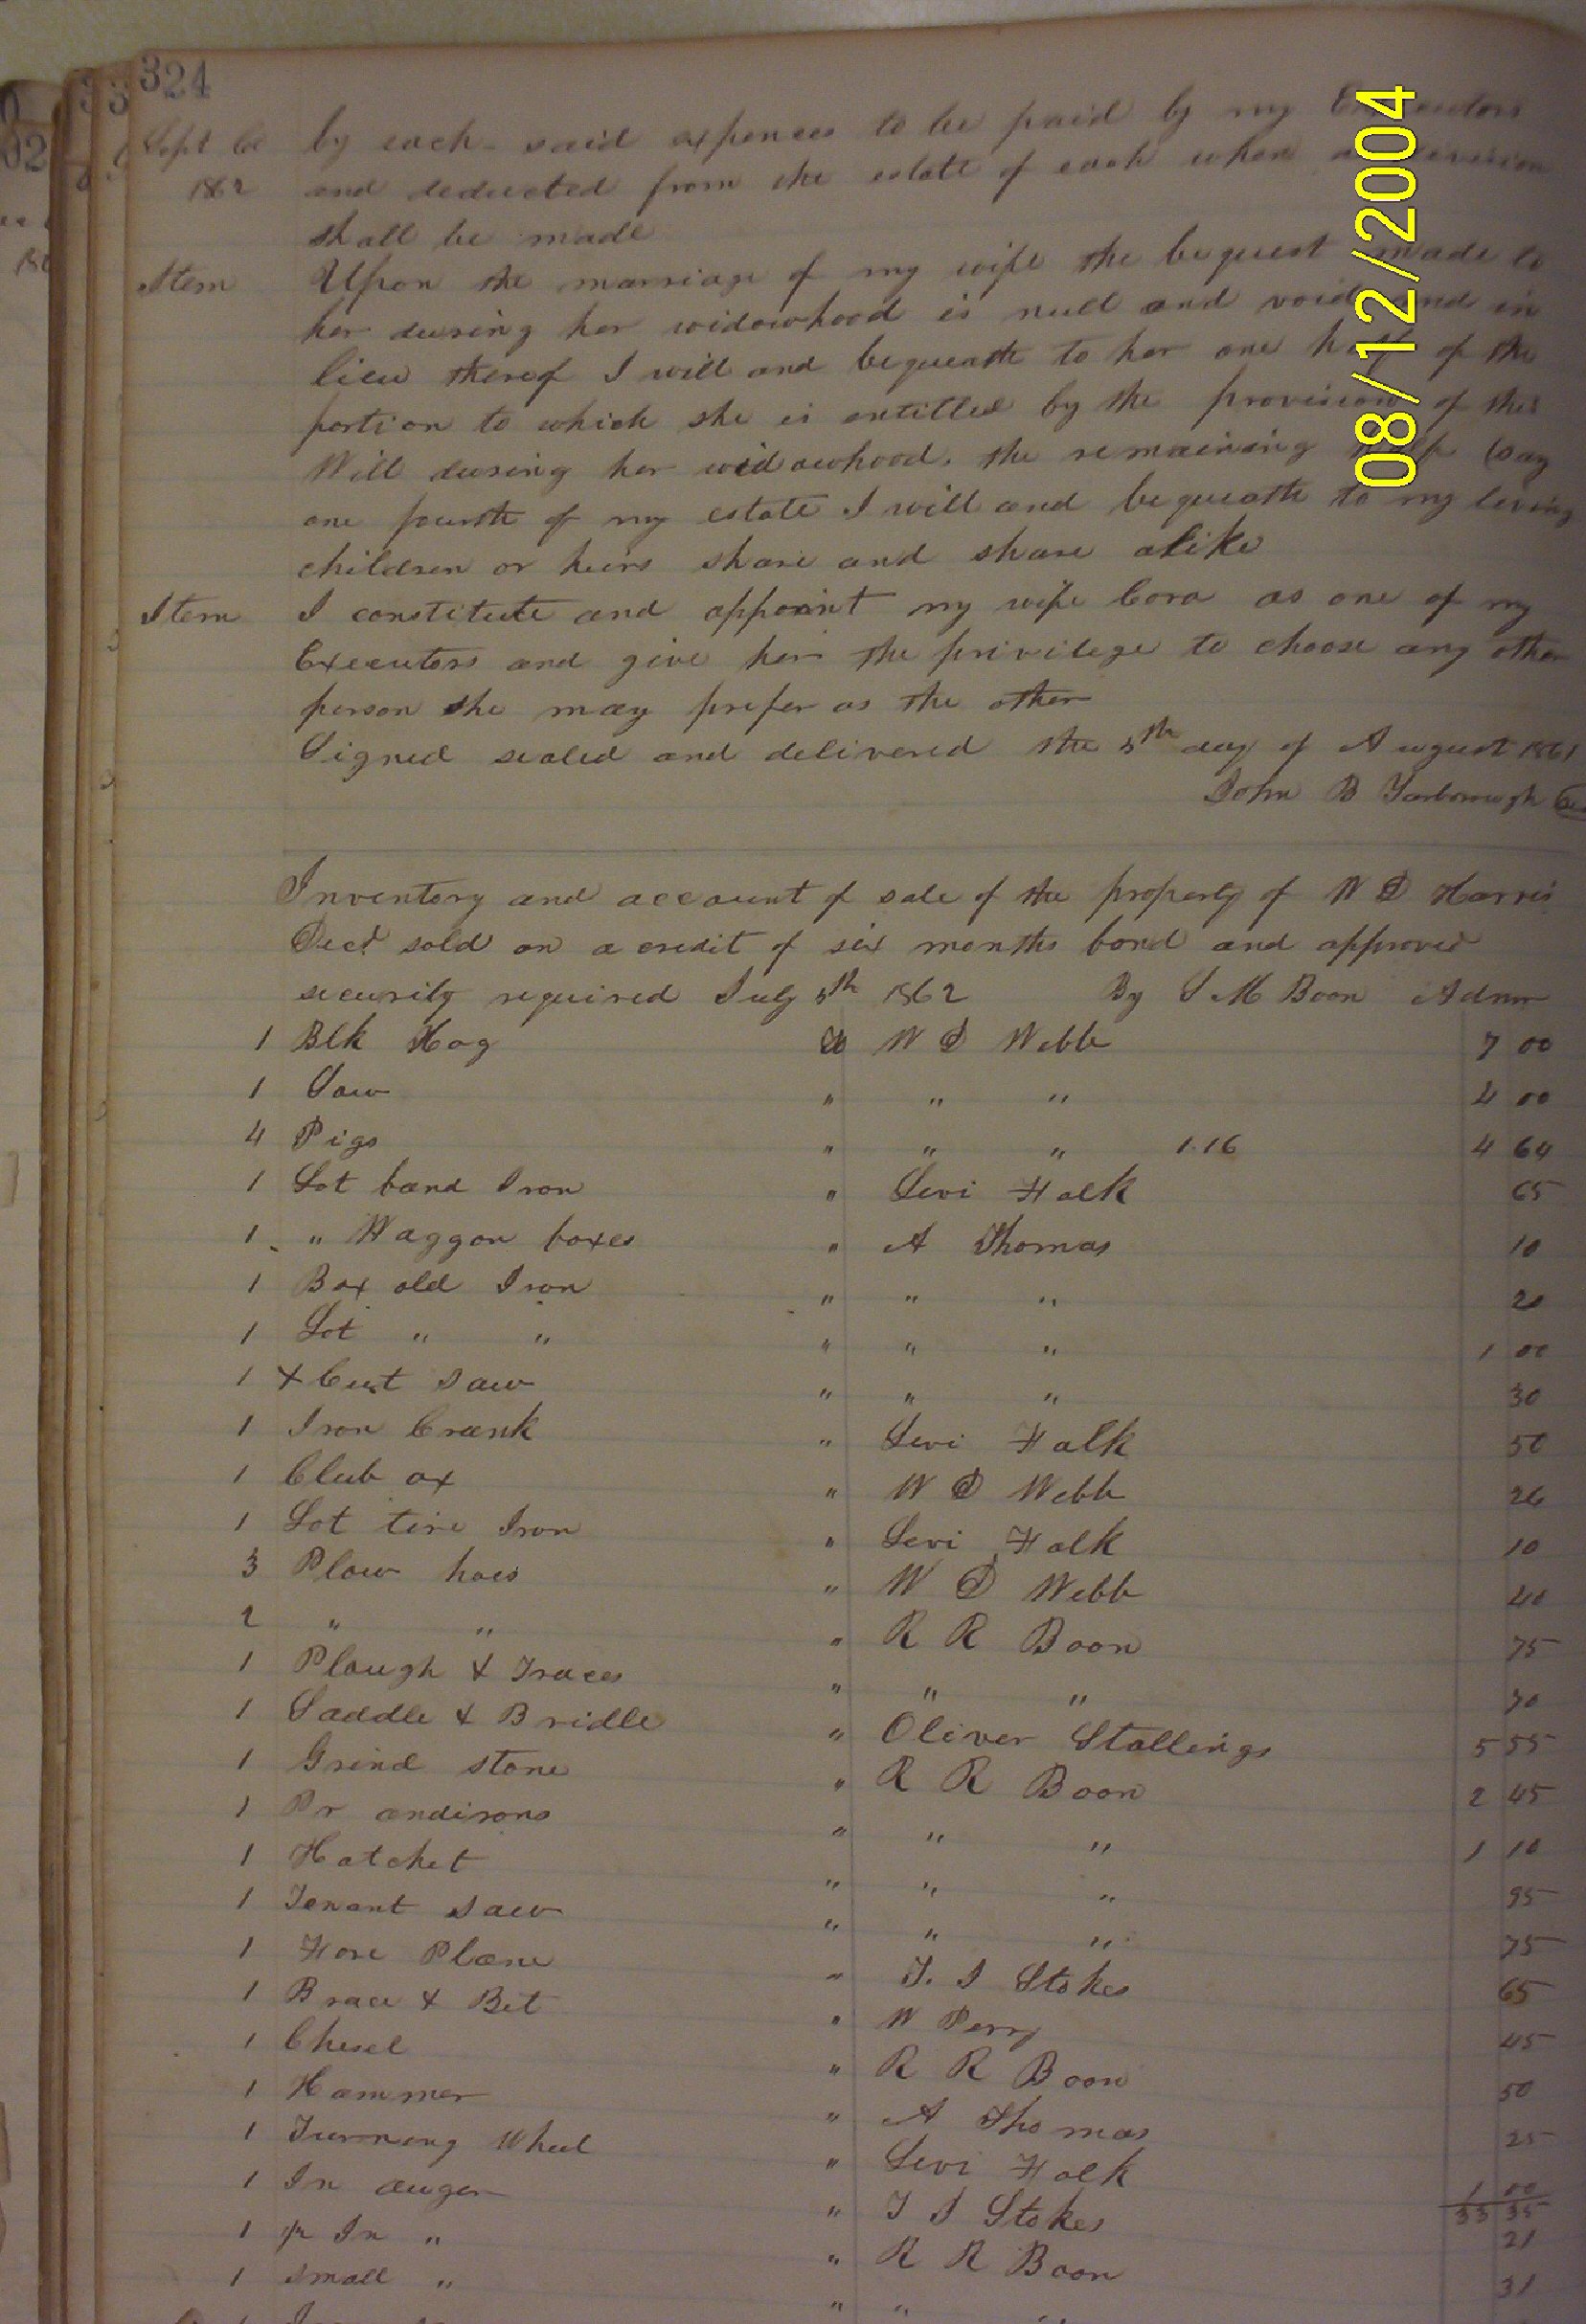 324
Sept Ct 1862
by each - said expences to be paid by my Executors
and deducted from the estate of each when a division
shall be made
Item Upon the marriage of my wife the bequest made to
her during her widowhood is null and void and in
lieu thereof I will and bequeath to her one half of the
portion to which she is entitled by the provision of this
Will during her widowhood. the remaining half (say
one fourth of my estate I will and bequeath to my living
children or heirs share and share alike
Item I constitute and appoint my wife Cora as one of my
Executors and give her the privilege to choose any other
person she may prefer as the other
Signed sealed and delivered the 5th day of August 1861
John B Yarborough
Inventory and account of sale of the property of W D Harris
Decd sold on a credit of six months bond and approved
security required July 5th 1862 By S M Boon Admr
1 Blk Hog To W D Webb 7 00
1 Sow " " " 4 00
4 Pigs " " " 1.16 4 64
1 Lot band Iron " Levi Falk 65
1 " Waggon boxes " A Thomas 10
1 Box old Iron " " " 20
1 Lot " " " " " 1 00
1 X Cut saw " " " 30
1 Iron Crank " Levi Falk 50
1 Club ax " W D Webb 26
1 Lot tire Iron " Levi Falk 10
3 Plow hoes " W D Webb 40
2 " " " R R Boon 75
1 Plough & Traces " " " 70
1 Saddle & Bridle " Oliver Stallings 5 55
1 Grind stone " R R Boon 2 45
1 Pr andirons " " " 1 10
1 Hatchet " " " 95
1 Tenant saw " " " 75
1 Fore Plane " T. I Stokes 65
1 Brace & Bit " W Perry 45
1 Chesel " R R Boon 50
1 Hammer " A Thomas 25
1 Turnong Wheel " Levi Falk 1 00
33 35
1 In auger " T I Stokes 21
1 In " " R R Boon 31
1 small " " " "
08/12/2004